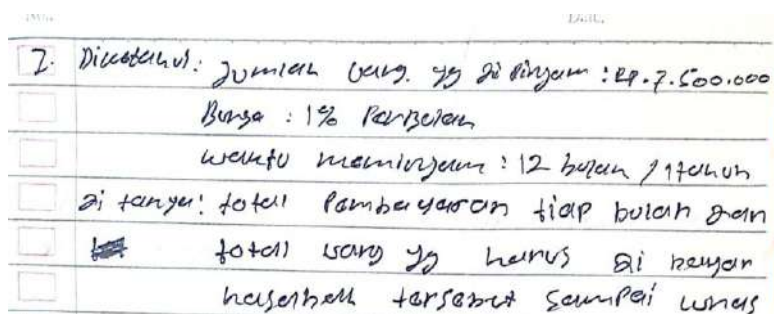 Date.
7. Diketahui: Jumlah uang yg di pinjam : Rp. 7.500.000
Bunga : 1% Perbulan
waktu meminjam : 12 bulan / 1 tahun
di tanya: total Pembayaran tiap bulan dan
total uang yg harus di bayar
tersebut sampai lunas